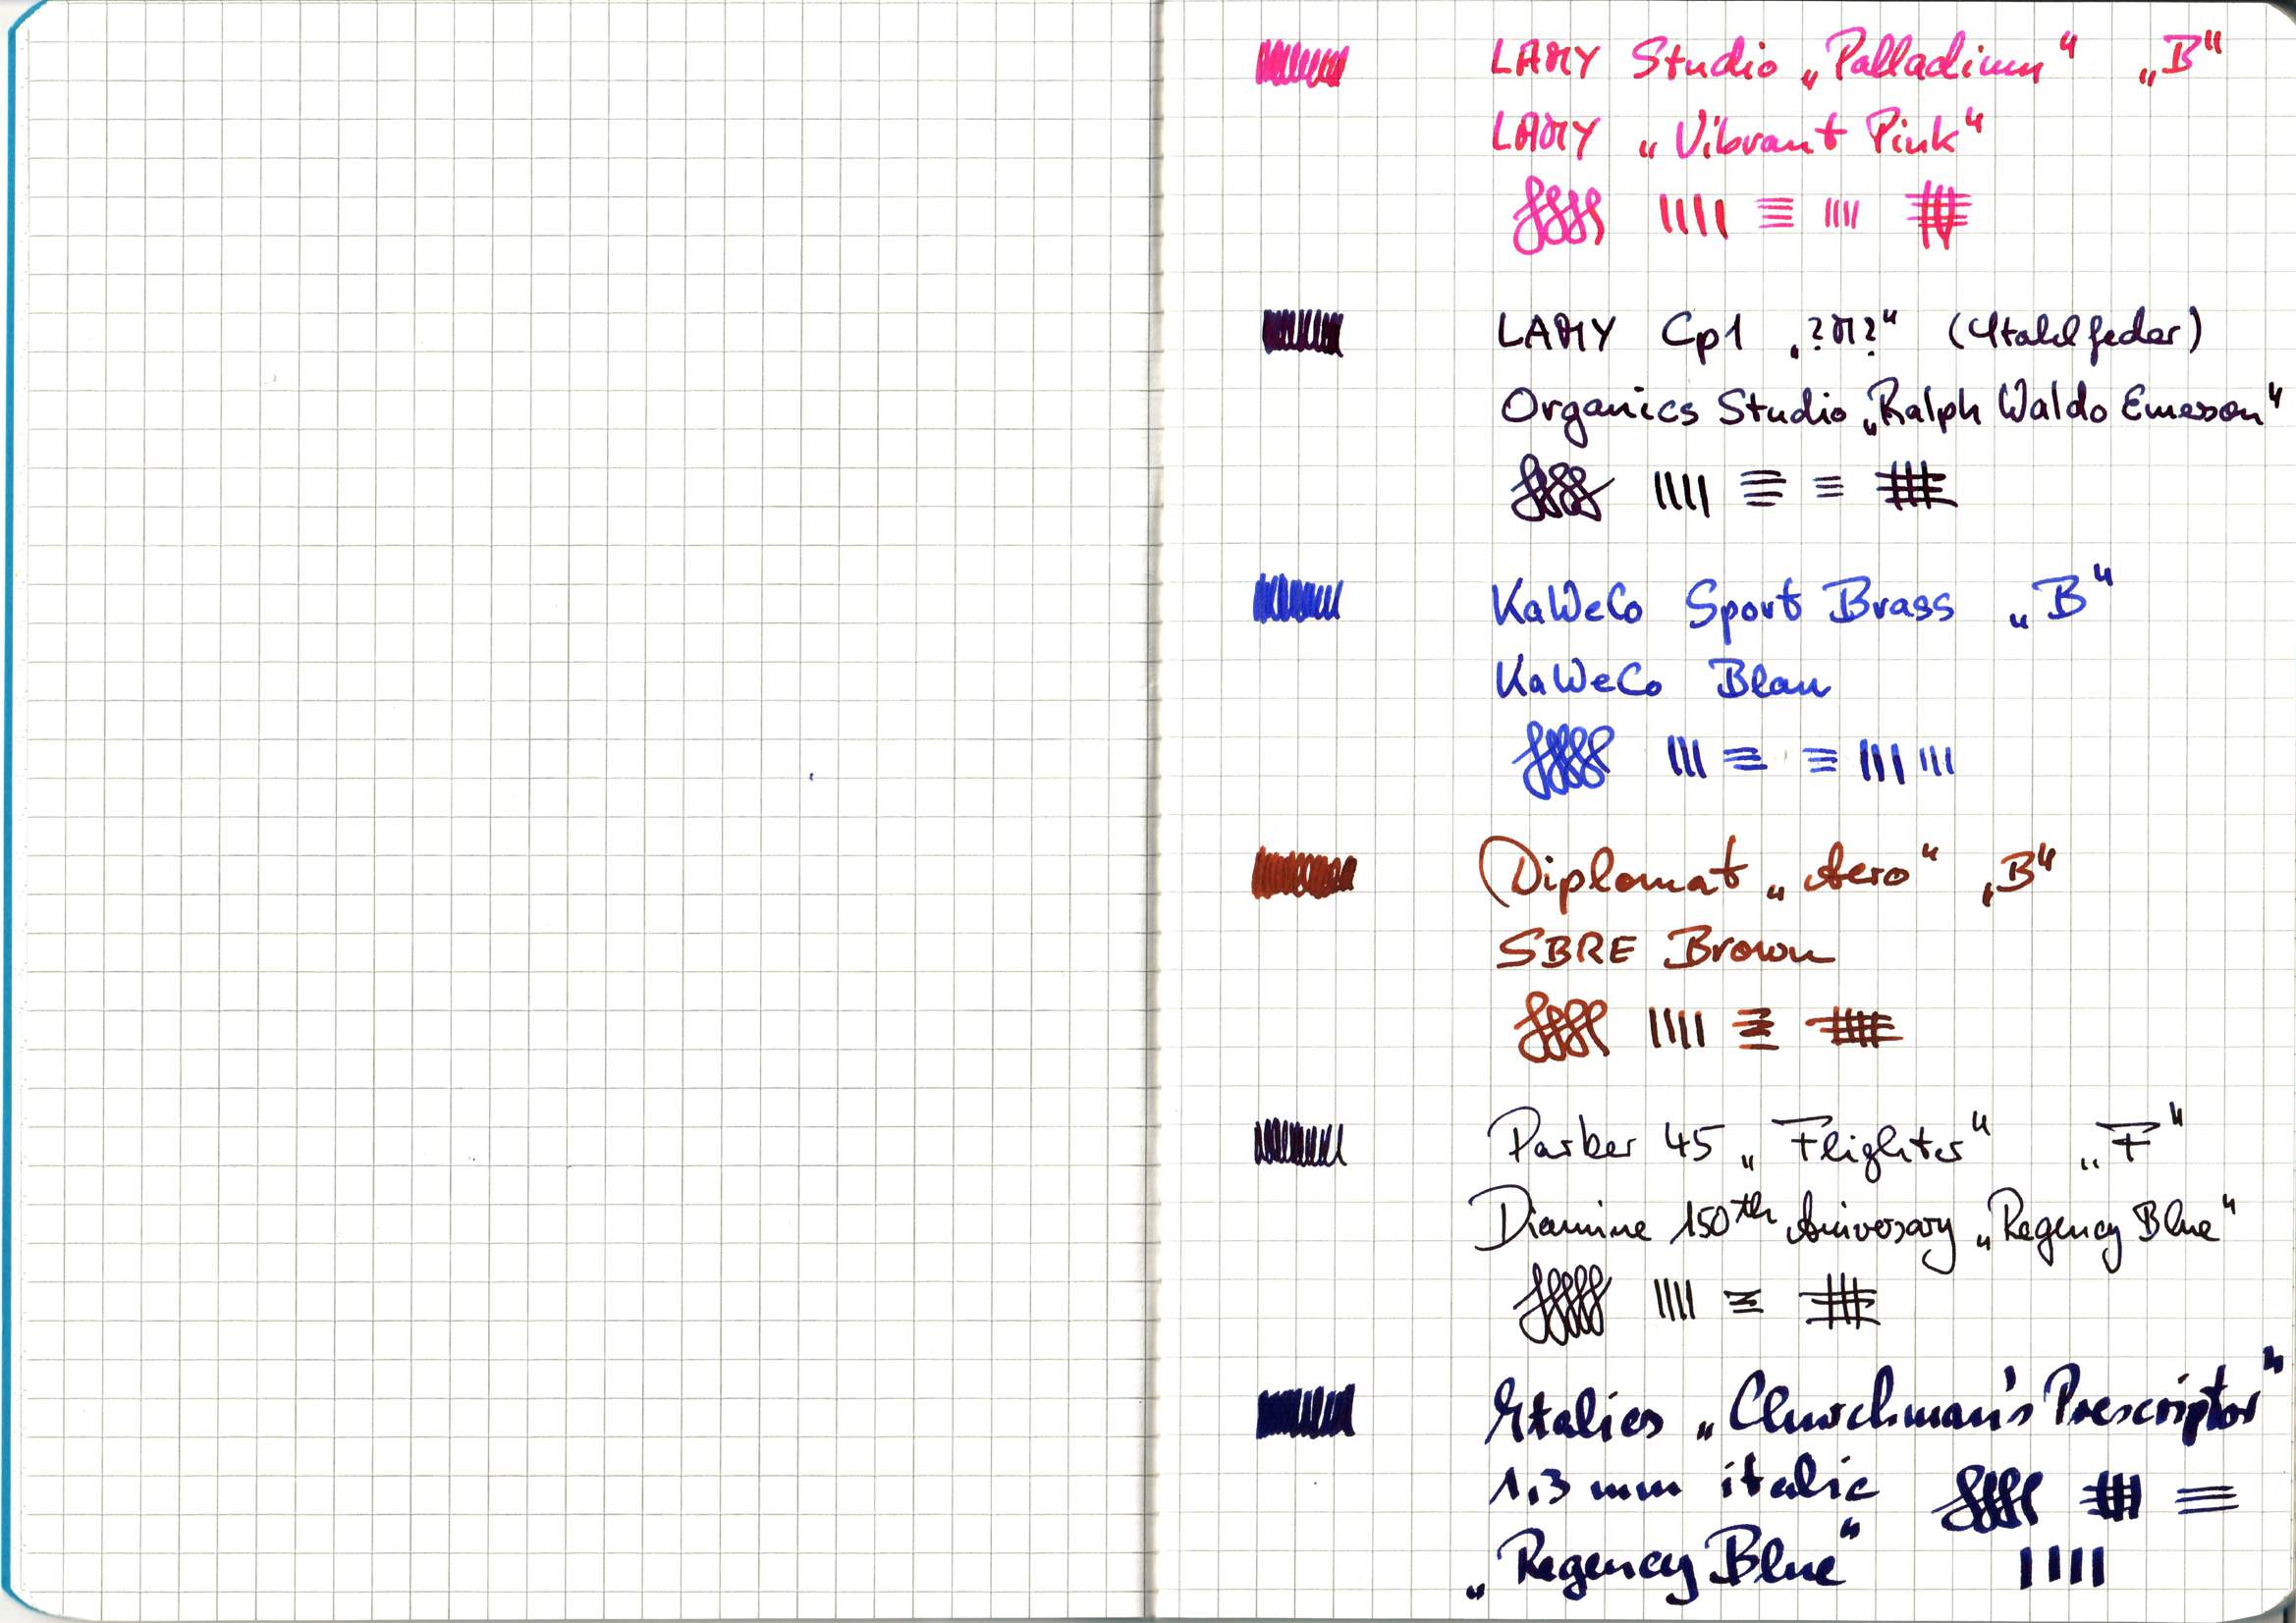 LAMY Studio „Palladium“ „B“
LAMY „Vibrant Pink“
LAMY Cp1 „?M?“ (Stahlfeder)
Organics Studio „Ralph Waldo Emerson“
KaWeCo Sport Brass „B“
KaWeCo Blau
Diplomat „Aero“ „B“
SBRE Brown
Parker 45 „Flighter“ „F“
Diamine 150th Aniversary „Regency Blue“
Italics „Churchman's Prescriptor“
1.3 mm italic
„Regency Blue“